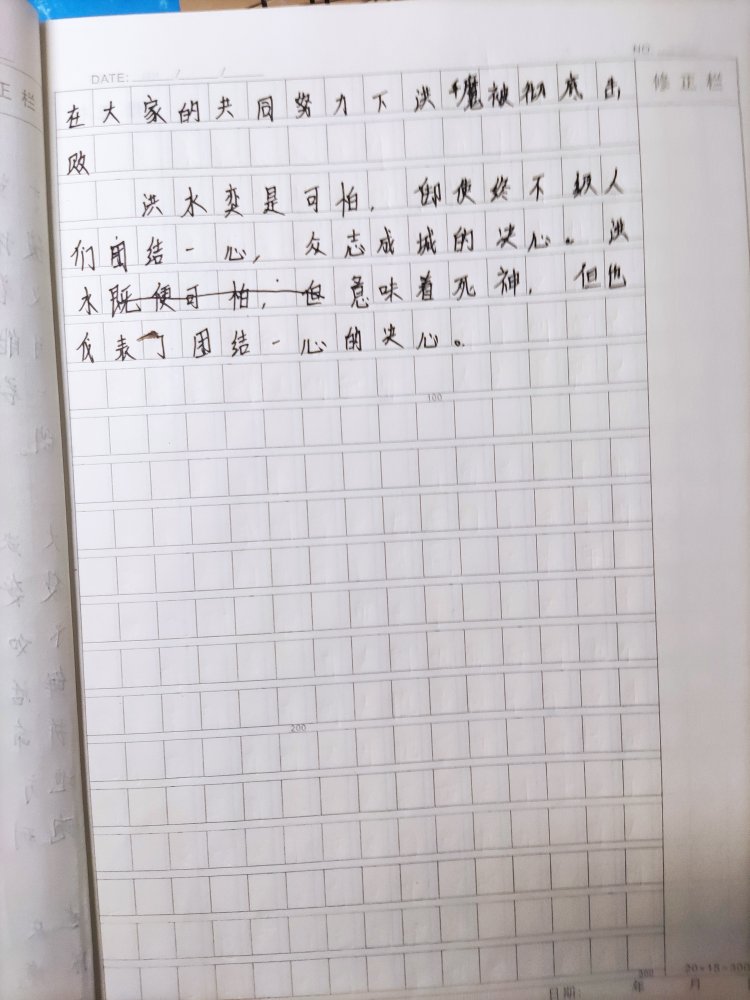 DATE: / /
修正栏
在大家的共同努力下洪魔被彻底击
败
洪水变是可怕,却使终不敌人
们团结一心,众志成城的决心。洪
水既便可怕,但意味着死神,但也
代表了团结一心的决心。
100
200
300
20×15=300
日期: 年 月
正栏